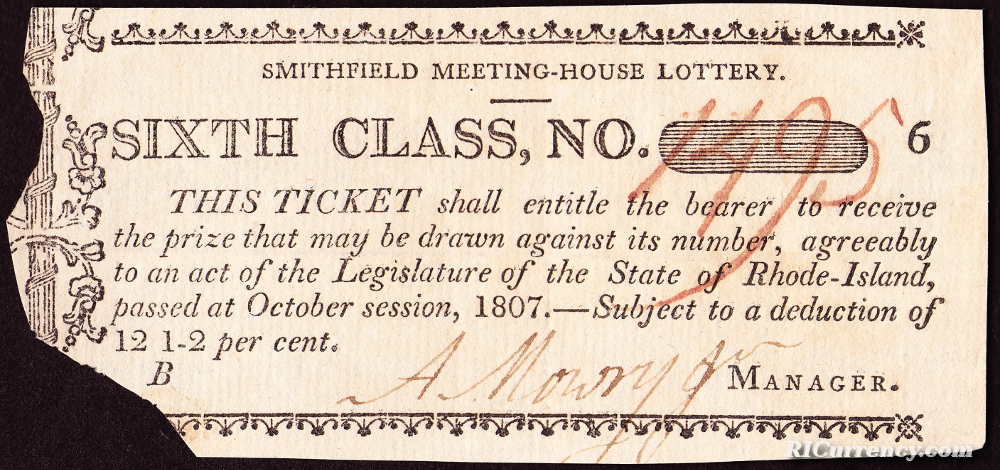 SMITHFIELD MEETING-HOUSE LOTTERY.
SIXTH CLASS, NO. 1495 6
THIS TICKET shall entitle the bearer to receive
the prize that may be drawn against its number, agreeably
to an act of the Legislature of the State of Rhode-Island,
passed at October session, 1807.—Subject to a deduction of
12 1-2 per cent.
B A Mowry Jr MANAGER.
RICurrency.com